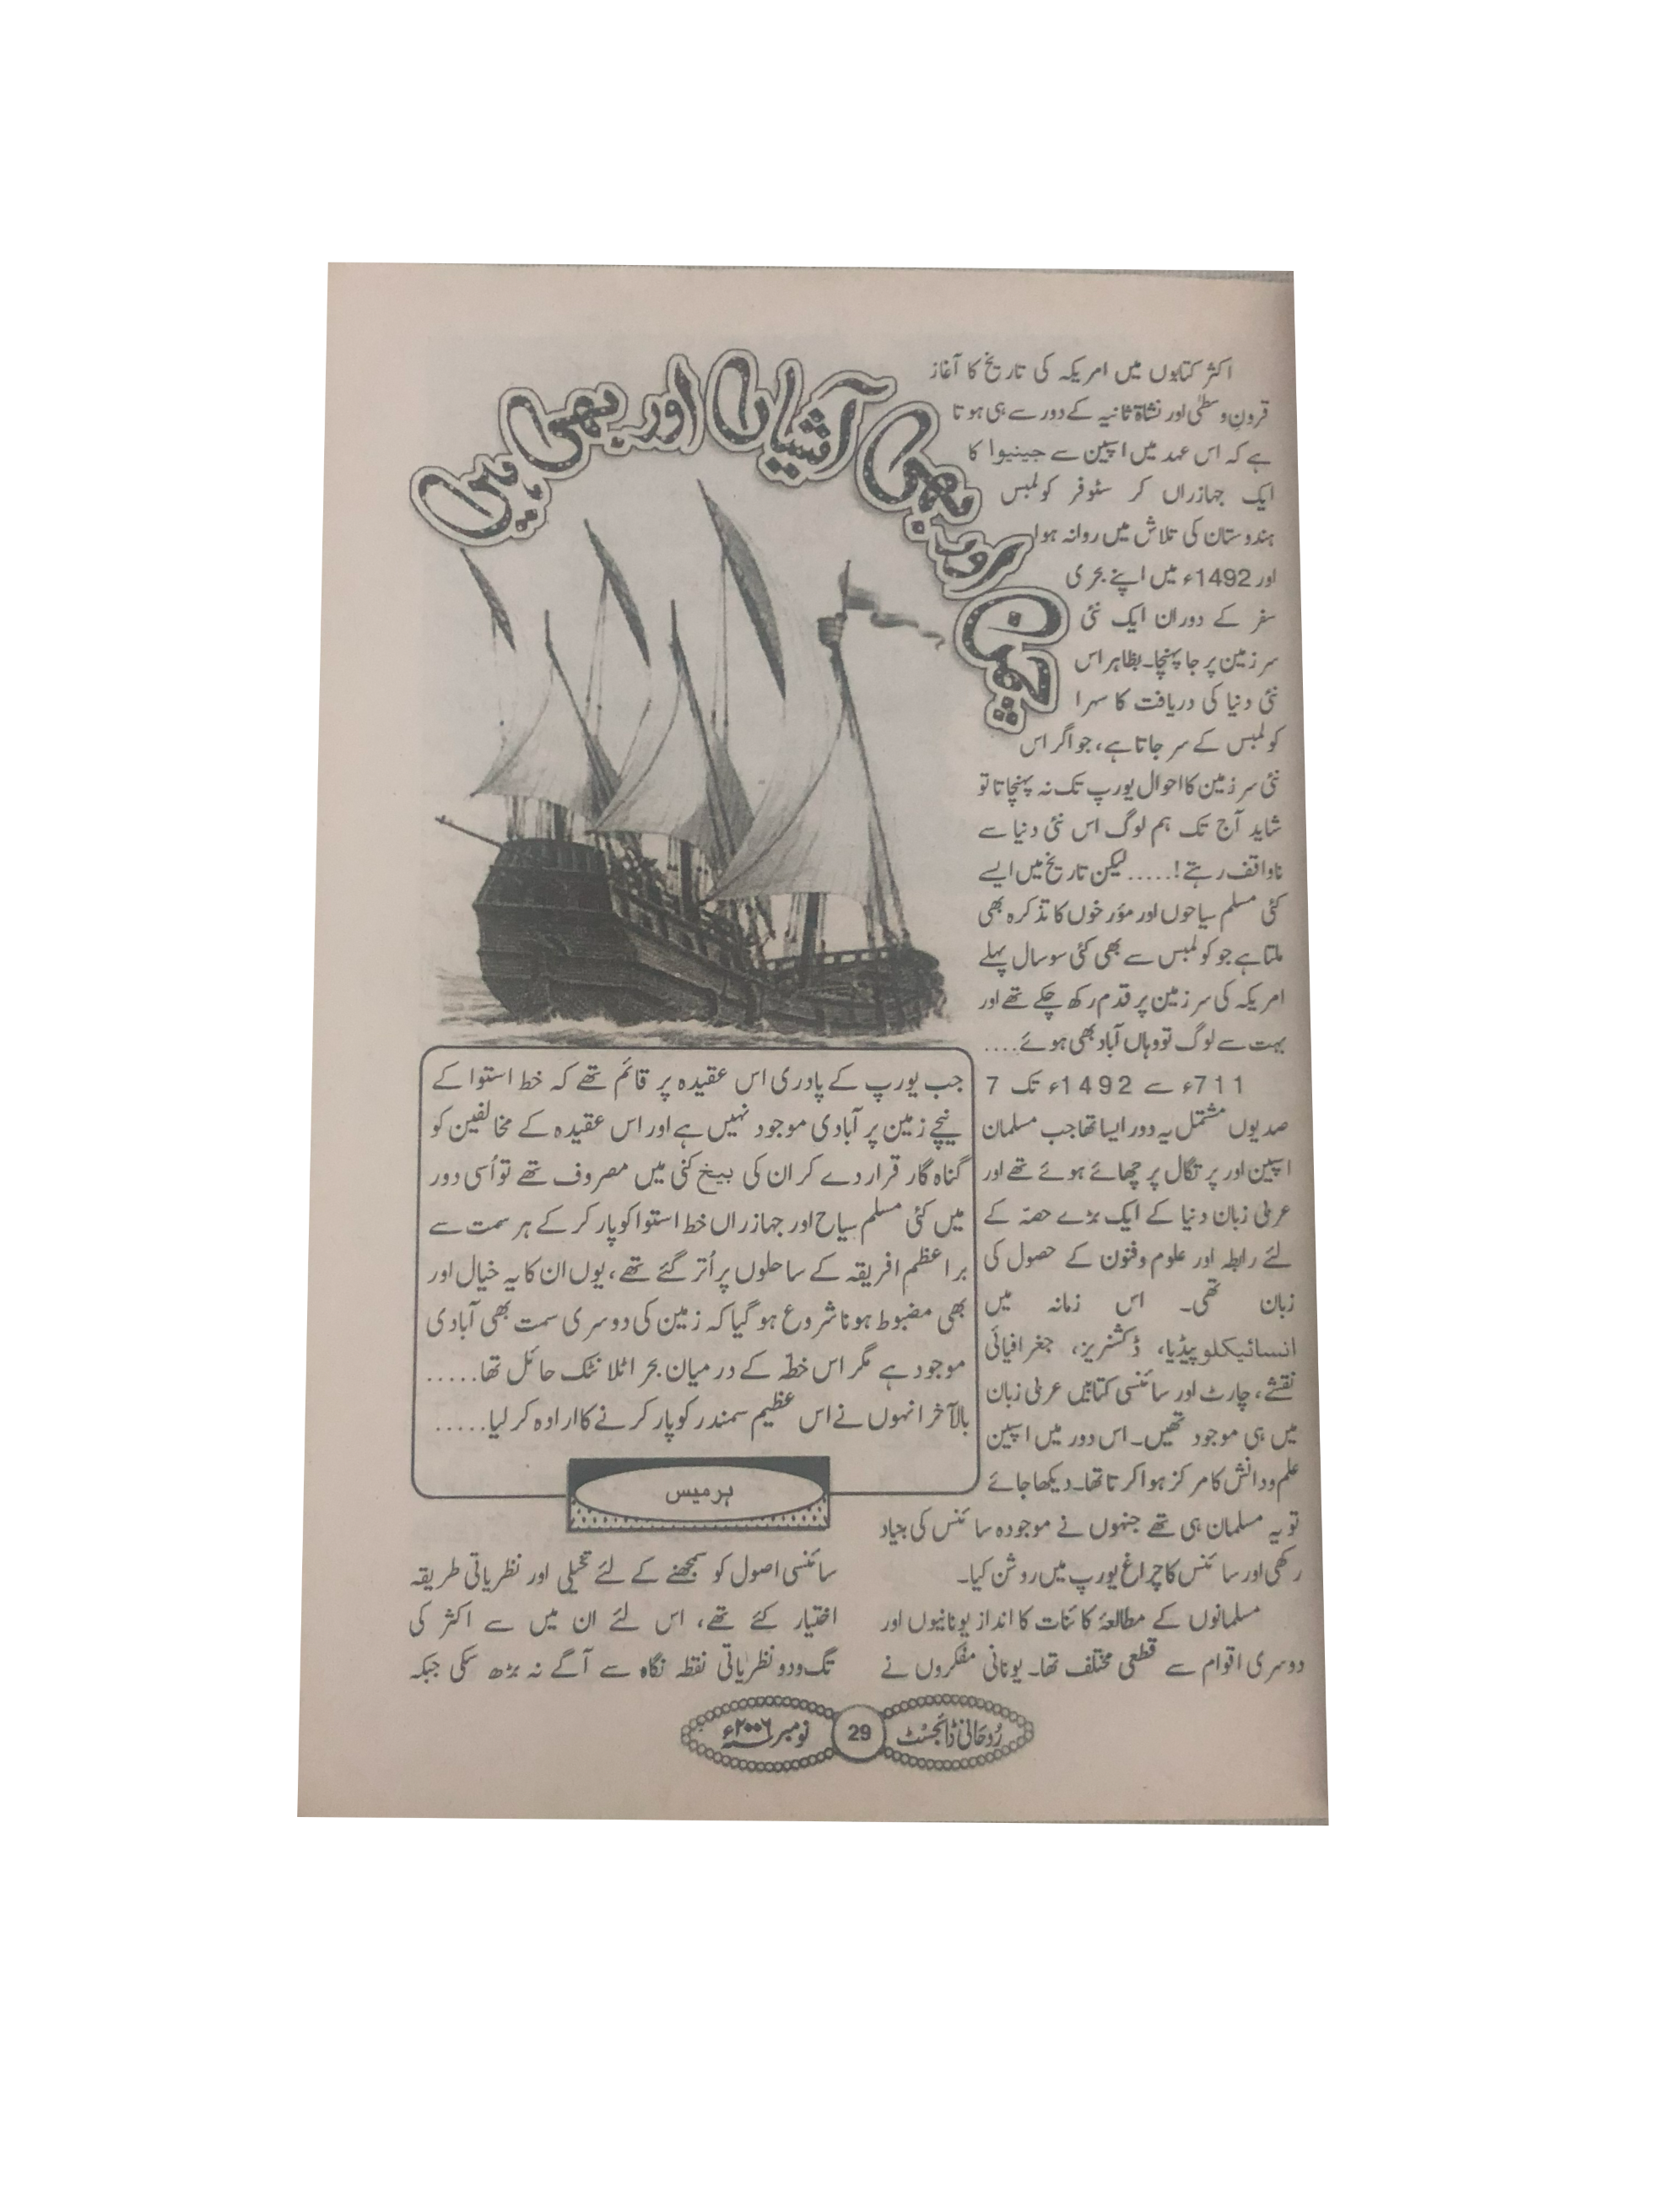 چمن اور بھی آشیاں اور بھی ہیں
اکثر کتابوں میں امریکہ کی تاریخ کا آغاز
قرونِ وسطیٰ اور نشاۃ ثانیہ کے دور سے ہی ہوتا
ہے کہ اس عہد میں اسپین سے جینیوا کا
ایک جہازراں کر سٹوفر کولمبس
ہندوستان کی تلاش میں روانہ ہوا
اور 1492ء میں اپنے بحری
سفر کے دوران ایک نئی
سرزمین پر جا پہنچا۔ بظاہر اس
نئی دنیا کی دریافت کا سہرا
کولمبس کے سر جاتا ہے، جو اگر اس
نئی سرزمین کا احوال یورپ تک نہ پہنچاتا تو
شاید آج تک ہم لوگ اس نئی دنیا سے
ناواقف رہتے!..... لیکن تاریخ میں ایسے
کئی مسلم سیاحوں اور مؤرخوں کا تذکرہ بھی
ملتا ہے جو کولمبس سے بھی کئی سو سال پہلے
امریکہ کی سرزمین پر قدم رکھ چکے تھے اور
بہت سے لوگ تو وہاں آباد بھی ہوئے....
711ء سے 1492ء تک 7
صدیوں مشتمل یہ دور ایسا تھا جب مسلمان
اسپین اور پرتگال پر چھائے ہوئے تھے اور
عربی زبان دنیا کے ایک بڑے حصّہ کے
لئے رابطہ اور علوم وفنون کے حصول کی
زبان تھی۔ اس زمانہ میں
انسائیکلوپیڈیا، ڈکشنریز، جغرافیائی
نقشے، چارٹ اور سائنسی کتابیں عربی زبان
میں ہی موجود تھیں۔ اس دور میں اسپین
علم ودانش کا مرکز ہوا کرتا تھا۔ دیکھا جائے
تو یہ مسلمان ہی تھے جنہوں نے موجودہ سائنس کی بنیاد
رکھی اور سائنس کا چراغ یورپ میں روشن کیا۔
مسلمانوں کے مطالعۂ کائنات کا انداز یونانیوں اور
دوسری اقوام سے قطعی مختلف تھا۔ یونانی مفکروں نے
جب یورپ کے پادری اس عقیدہ پر قائم تھے کہ خط استوا کے
نیچے زمین پر آبادی موجود نہیں ہے اور اس عقیدہ کے مخالفین کو
گناہ گار قرار دے کر ان کی بیخ کنی میں مصروف تھے تو اُسی دور
میں کئی مسلم سیاح اور جہازراں خط استوا کو پار کر کے ہر سمت سے
براعظم افریقہ کے ساحلوں پر اُتر گئے تھے، یوں ان کا یہ خیال اور
بھی مضبوط ہونا شروع ہو گیا کہ زمین کی دوسری سمت بھی آبادی
موجود ہے مگر اس خطّہ کے درمیان بحر اٹلانٹک حائل تھا.....
بالآخر انہوں نے اس عظیم سمندر کو پار کرنے کا ارادہ کر لیا.....
ہرمیس
سائنسی اصول کو سمجھنے کے لئے تخیلی اور نظریاتی طریقہ
اختیار کئے تھے، اس لئے ان میں سے اکثر کی
تگ ودو نظریاتی نقطہ نگاہ سے آگے نہ بڑھ سکی جبکہ
رُوحانی ڈائجسٹ 29 نومبر ۲۰۰۶ء